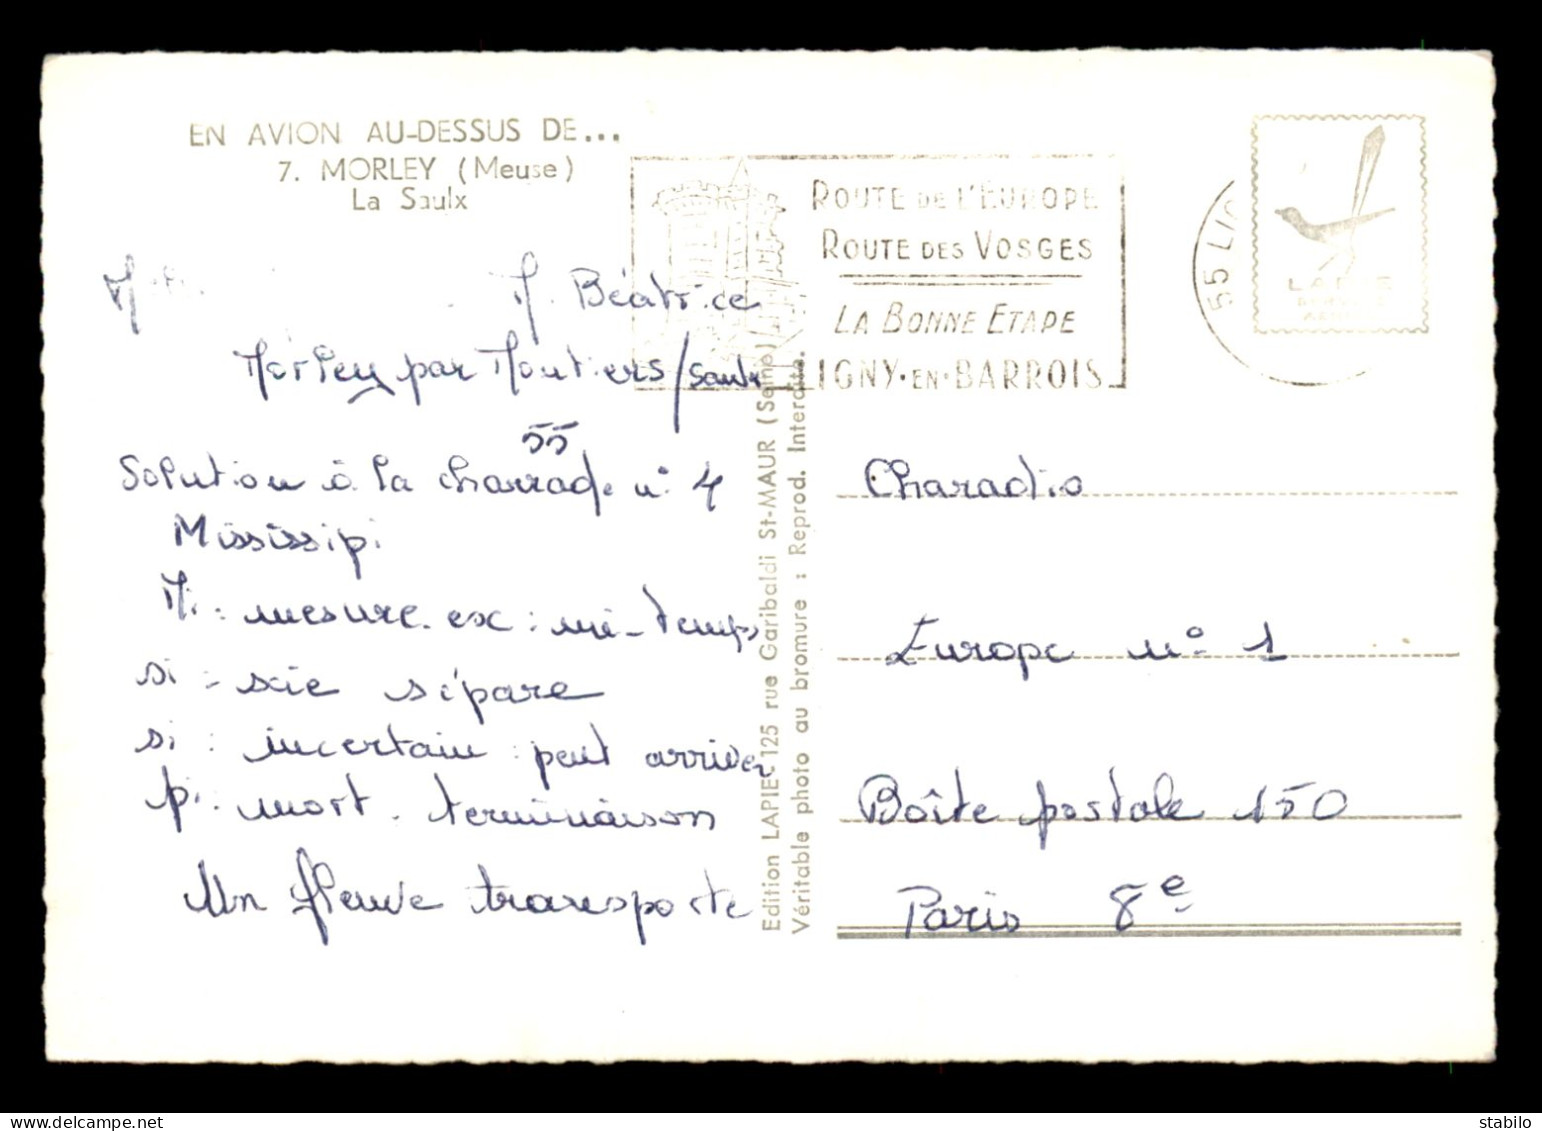 EN AVION AU-DESSUS DE...
7. MORLEY (Meuse)
La Saulx
ROUTE DE L'EUROPE
ROUTE DES VOSGES
LA BONNE ETAPE
LIGNY-EN-BARROIS
55 LIG
LAPIE
Béatrice
Morley par Montiers/Saulx
55
Solution à la charrade n° 4
Mississipi
Mi : mesure ex : mi-temps
si : scie sépare
si : incertain : peut arriver
pi : mort. terminaison
Un fleuve transporte
Edition LAPIE - 125 rue Garibaldi St-MAUR (Seine)
Véritable photo au bromure : Reprod. Interdite.
Charadio
Europe n° 1
Boîte postale 150
Paris 8e
stabilo